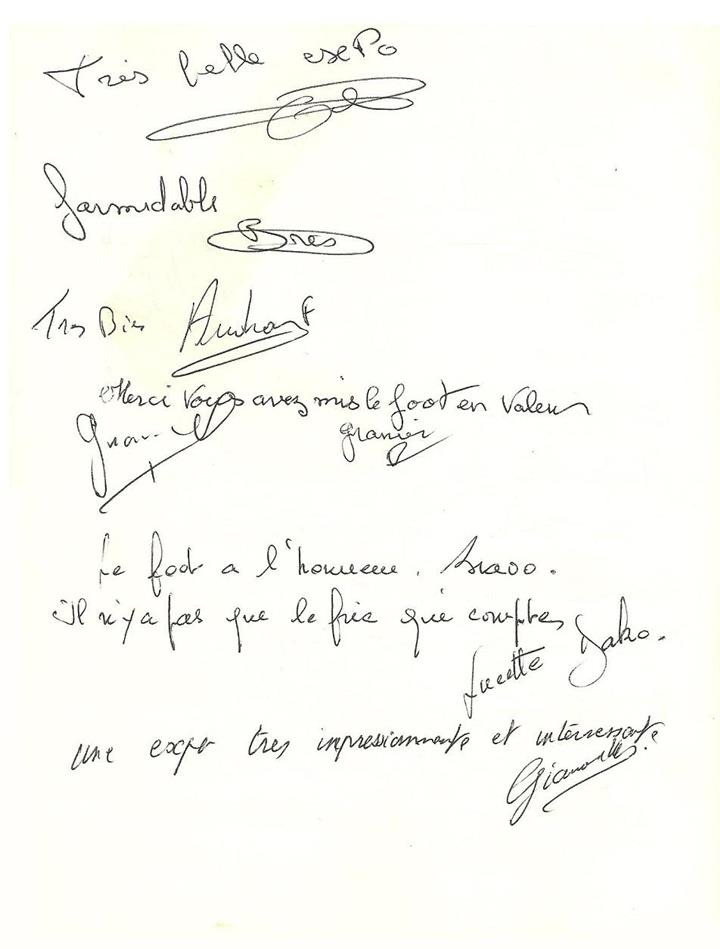 Très belle exsPo
formidable
Bres
Tres Bien
Merci Vous avez mis le foot en Valeur
granier
Le foot a l'honneur. Bravo.
il n'y a pas que le fric qui comptes
Lucette Dako.
une expo tres impressionnante et intérressante